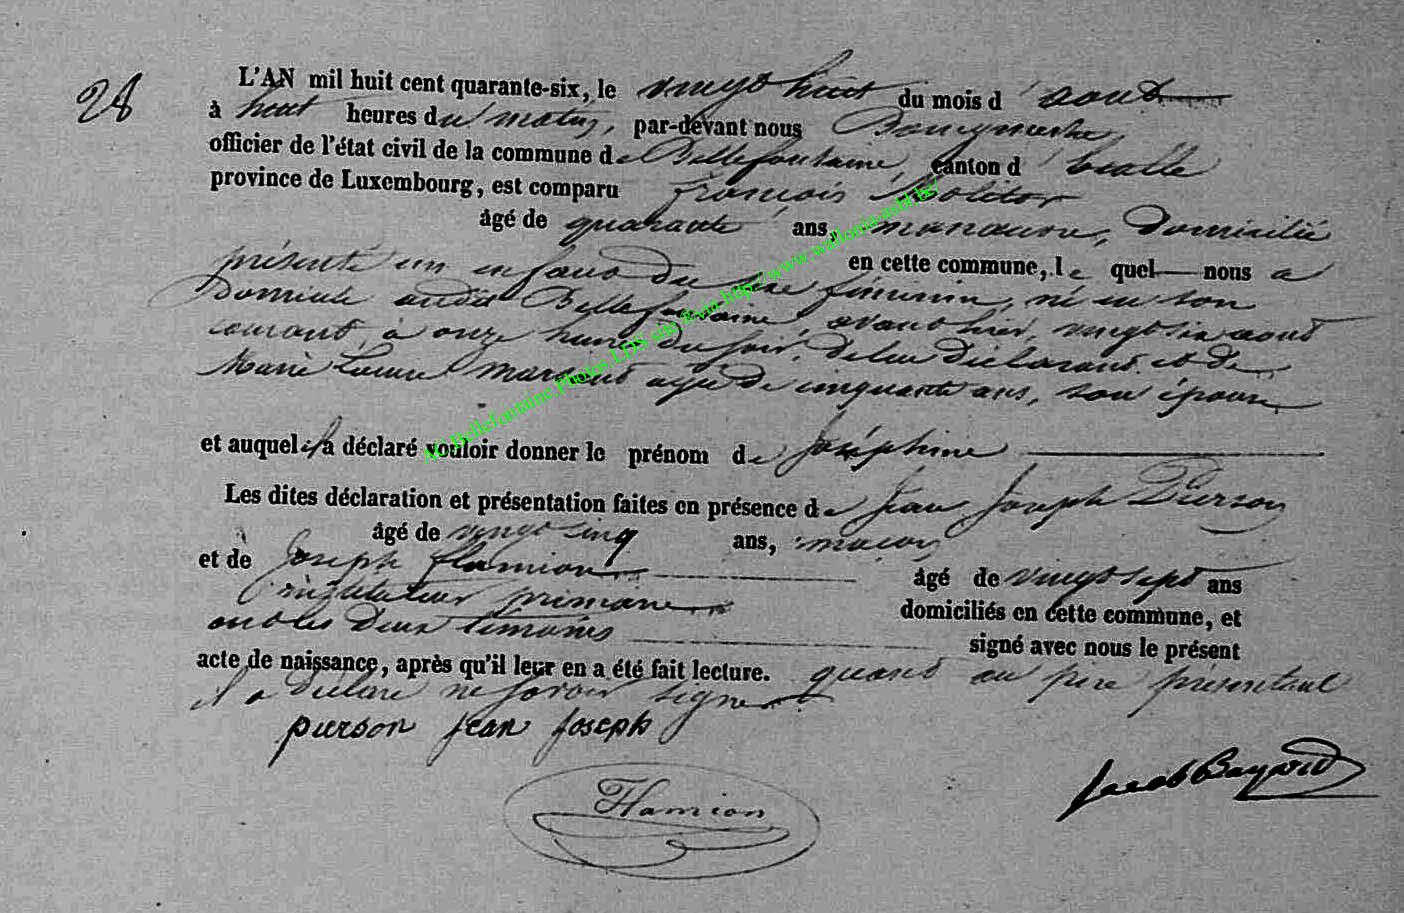 28
L'AN mil huit cent quarante-six, le vingt huit du mois d'aout
à huit heures du matin, par-devant nous Bourgmestre,
officier de l'état civil de la commune de Bellefontaine, canton d'Etalle
province de Luxembourg, est comparu françois Molitor
âgé de quarante ans, manoeuvre, domicilié
en cette commune, lequel nous a
présenté un enfant du sexe féminin, né en son
Domicile audit Bellefontaine, avant hier, vingt six aout
courant, à onze heures du soir, de lui Déclarant et de
Marie agée de cinquante ans, son épouse
et auquel il a déclaré vouloir donner le prénom de Joséphine
Les dites déclaration et présentation faites en présence de Jean Joseph Pierson
âgé de vingt cinq ans, macon
et de Joseph flamion âgé de vingt sept ans
instituteur primaire domiciliés en cette commune, et
ont les Deux témoins signé avec nous le présent
acte de naissance, après qu'il leur en a été fait lecture. quant au père présentant
il a Déclaré ne savoir signer
pierson jean joseph
Jacob Bayard
Flamion
AC Bellefontaine Photos LDS via http://www.wallonia-asbl.be/